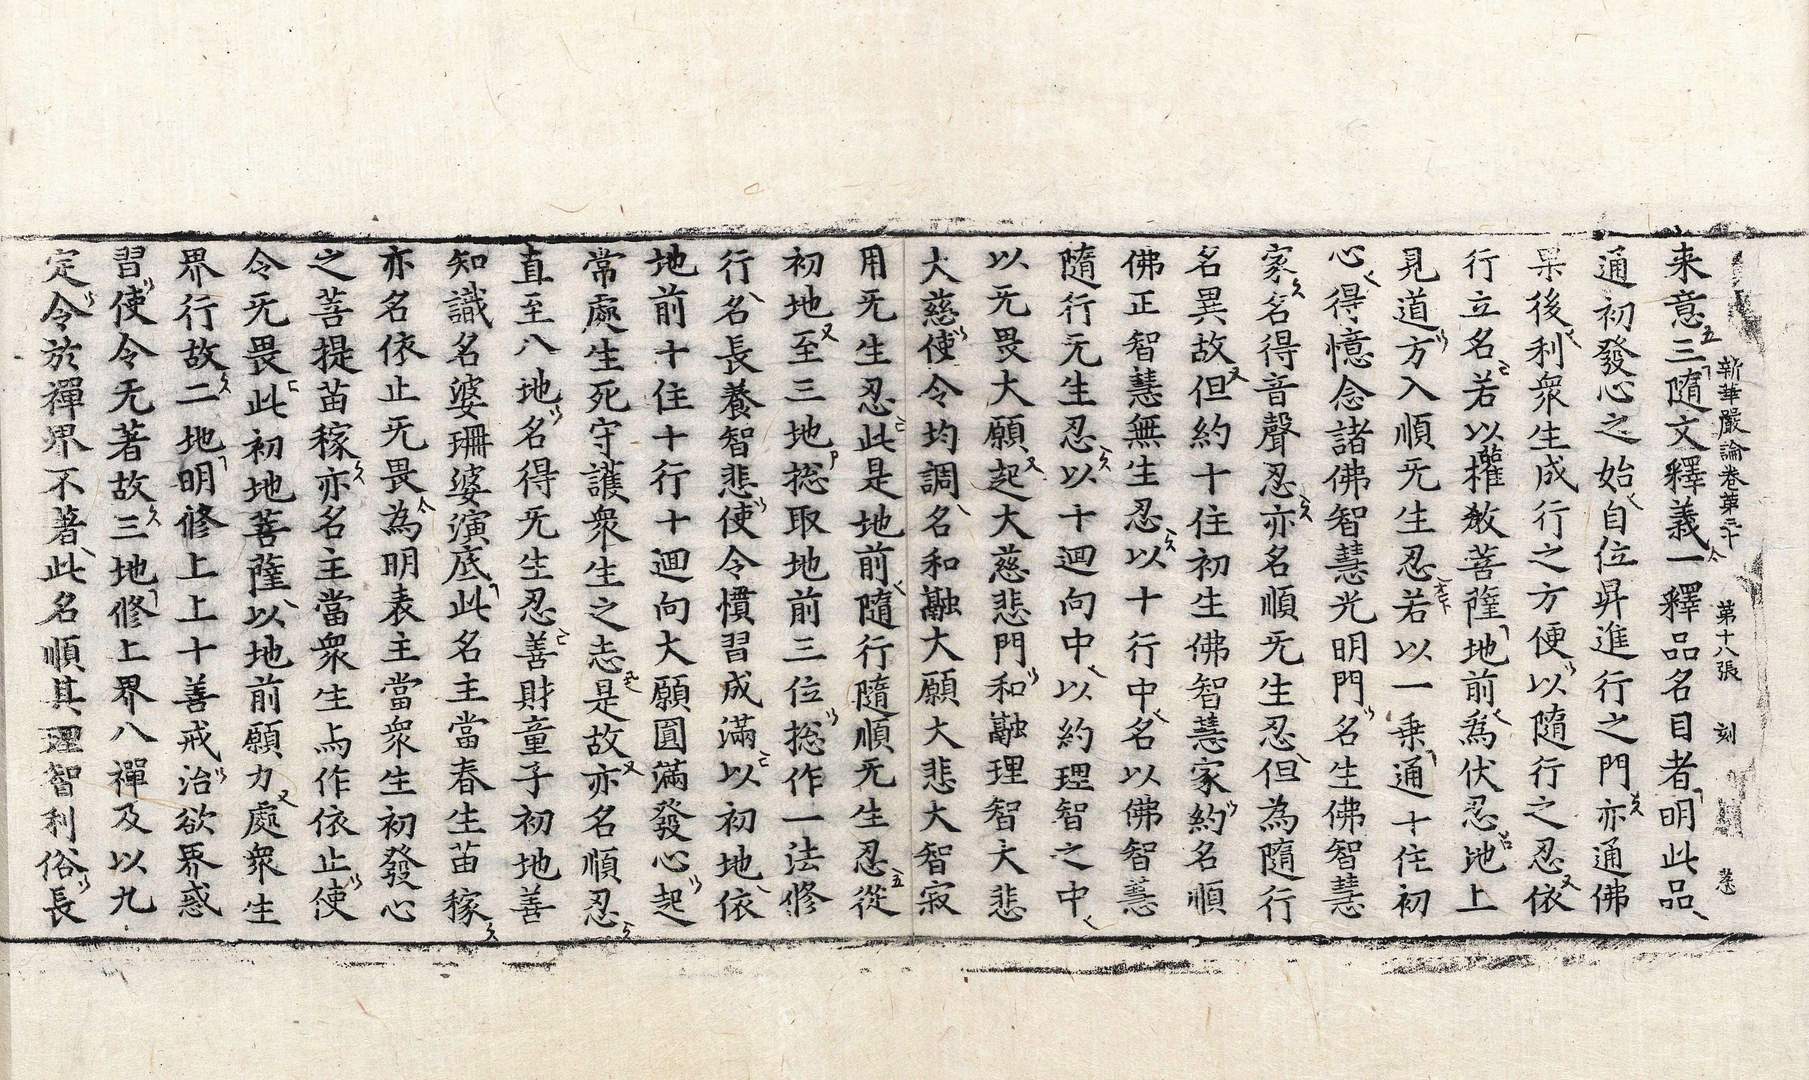 新華嚴論卷第二十　第十八張　刻
来意三隨文釋義一釋品名目者明此品
通初發心之始自位昇進行之門亦通佛
果後利衆生成行之方便以隨行之忍依
行立名若以權敎菩薩地前爲伏忍地上
見道方入順无生忍若以一乗通十住初
心得憶念諸佛智慧光明門名生佛智慧
家名得音聲忍亦名順无生忍但為隨行
名異故但約十住初生佛智慧家約名順
佛正智慧無生忍以十行中名以佛智慧
隨行无生忍以十迴向中以約理智之中
以无畏大願起大慈悲門和融理智大悲
大慈使令均調名和融大願大悲大智寂
用无生忍此是地前隨行隨順无生忍從
初地至三地捴取地前三位捴作一法修
行名長養智悲使令慣習成滿以初地依
地前十住十行十迴向大願圓滿發心起
常處生死守護衆生之志是故亦名順忍
直至八地名得无生忍善財童子初地善
知識名婆珊婆演底此名主當春生苗稼
亦名依止无畏為明表主當衆生初發心
之菩提苗稼亦名主當衆生与作依止使
令无畏此初地菩薩以地前願力處衆生
界行故二地明修上上十善戒治欲界惑
習使令无著故三地修上界八禪及以九
定令於禪界不著此名順其理智利俗長